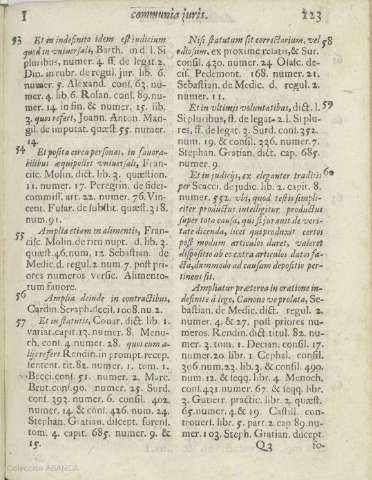 I communia juris. 223
53 Et in indefinita idem est judicium
quod in vniversali, Barth. in d. l. Si
pluribus, numer. 4. ff. de legat. 2.
Din. in rubr. de regul. jur. lib. 6.
numer. 5. Alexand. conf. 63. nu-
mer. 4. lib. 6. Rolan. conf. 89. nu-
mer. 14. in fin. & numer. 15. lib.
3. quos refert, Joann. Anton. Man-
gil. de imputat. quæst. 55. numer.
14.
54 Et posita circa personas, in favora-
bilibus æquipollet vniversali, Fran-
cisc. Molin. dict. lib. 3. quæstion.
11. numer. 17. Peregrin. de fidei-
commiss. art. 22. numer. 76. Vin-
cent. Fusar. de substit. quæst. 318.
num. 91.
55 Amplia etiam in alimentis, Fran-
cisc. Molin. de ritu nupt. d. lib. 3.
quæst. 46. num. 12. Sebastian. de
Medic. d. regul. 2. num. 7. post prio-
res numeros versic. Alimento-
rum favore.
56 Amplia deinde in contractibus,
Cardin. Seraph. decis. 1008. nu. 2.
57 Et in statutis, Covar. dict. lib. 1.
variar. capit. 13. numer. 8. Menu-
ch. conf. 4. numer. 28. quos cum a-
lijs refert Rendin. in prompt. recep.
sentent. tit. 82. numer. 1. tom. 1.
Becci. conf. 51. numer. 2. Marc.
Brut. conf. 90. numer. 25. Surd.
conf. 393. numer. 6. consil. 402.
numer. 14. & conf. 426. num. 24.
Stephan. Gratian. discept. forens.
tom. 4. capit. 685. numer. 9. &
15.
Nisi statutum sit correctorium, vel 58
odiosum, ex proxime relatis, & Sur.
consil. 420. numer. 24. Osasc. de-
cis. Pedemont. 168. numer. 21.
Sebastian. de Medic. d. regul. 2.
numer. 11.
Et in vltimis voluntatibus, dict. l. 59
Si pluribus, ff. de legat. 2. l. Si plu-
res, ff. de legat. 3. Surd. conf. 352.
num. 19. & consil. 326. numer. 7.
Stephan. Gratian. dict. cap. 685.
numer. 9.
Et in judicijs, ex eleganter traditis 60
per Scacci. de judic. lib. 2. capit. 8.
numer. 552. vbi, quod testis simpli-
citer productus intelligitur productus
super tota causa, qui si jurant de veri-
tate dicenda, licet quis producat certos
post modum articulos daret, valeret
dispositio ab eo extra articulos datos fa-
cta, dummodo ad causam depositio per-
tineret sit.
Ampliatur præterea in oratione in-
definite à lege, Canone ve prolata, Se-
bastian. de Medic. dict. regul. 2.
numer. 4. & 27. post priores nu-
meros. Rendin. dict. titul. 82. nu-
mer. 3. tom. 1. Decian. consil. 17.
numer. 20. libr. 1. Cephal. consil.
306. num. 23. lib. 3. & consil. 490.
num. 12. & seqq. libr. 4. Menoch.
conf. 431. numer. 67. & seqq. libr.
3. Gutierr. practic. libr. 2. quæst.
65. numer. 4. & 19. Castill. con-
trovers. libr. 5. part. 2. cap. 89. nu-
mer. 103. Steph. Gratian. discept.
Q3 fo-
Colección ABANCA